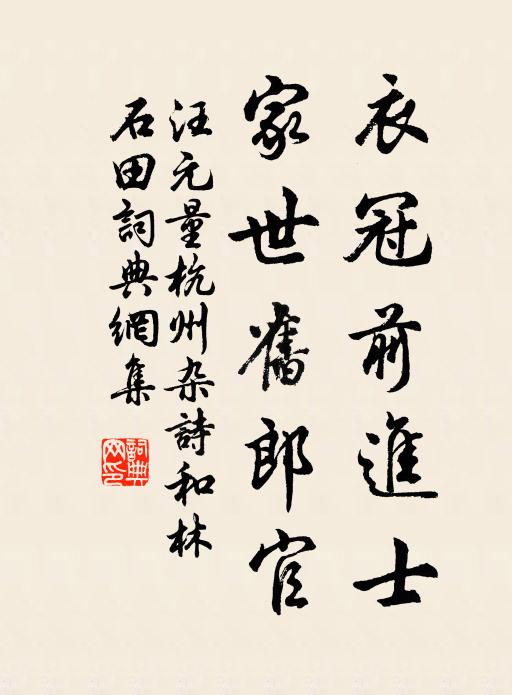 衣冠前進士
家世舊郎官
汪元量杭州杂詩和林
石田詞典網集
詞典網印